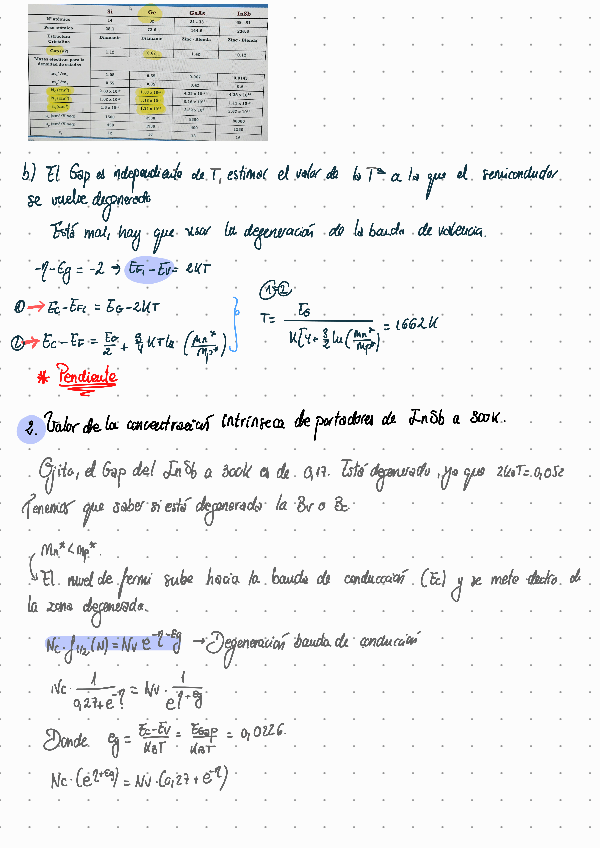 Si Ge GaAs InSb
Nº atómico 14 32
Peso atómico 28.1 72.6 144.6
Estructura Cristalina Diamante Diamante Zinc - Blenda Zinc - Blenda
b) El Gap es independiente de T, estimar el valor de la Tª a la que el semiconductor
se vuelve degenerado
Está mal, hay que usar la degeneración de la banda de valencia.
-η-Eg = -2 → EFi - EV = 2KT
① → EC-EFi = EG-2KT
② → EC-EF = EG/2 + 3/4 KT ln (mn*/mp*)
①=②
T = EG / K[4+3/2 ln(mn*/mp*)] = 1662K
* Pendiente
2. Valor de la concentración intrínseca de portadores de InSb a 300K.
Ojito, el Gap del InSb a 300K es de 0,17. Está degenerado, ya que 2KBT=0,052
Tenemos que saber si está degenerada la Bv o Bc
mn* < mp*.
El nivel de fermi sube hacia la banda de conducción (Ec) y se mete dentro de
la zona degenerada.
Nc·f1/2(N) = Nv e^-η-eg → Degeneración banda de conducción
Nc · 1/(0,27+e^-η) = Nv · 1/e^η+eg
Donde eg = (Ec-Ev)/KBT = EGap/KBT = 0,0226.
Nc·(e^η+eg) = Nv·(0,27+e^-η)